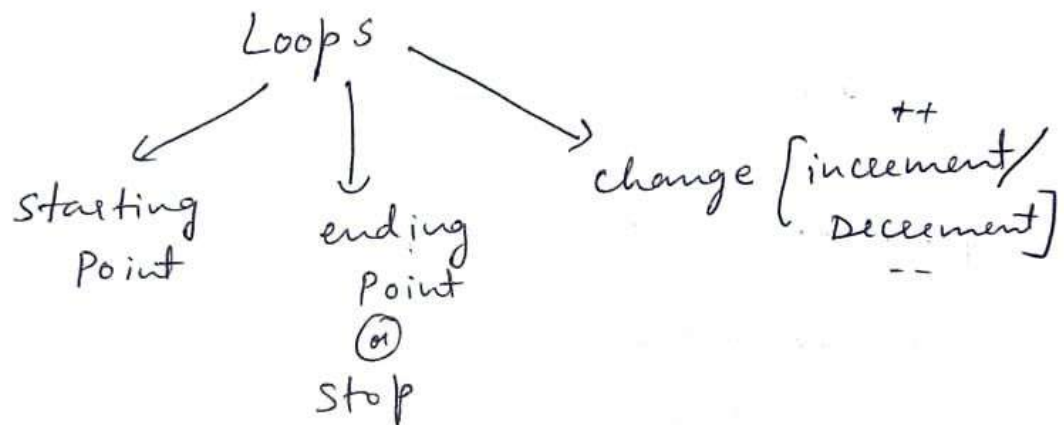 Loops
starting
Point
ending
Point
or
Stop
++
change [increment/
Decrement]
--